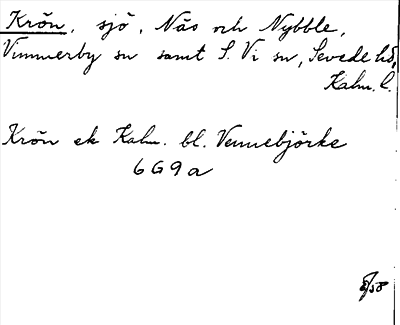 Krön, sjö, Näs och Nybble,
Vimmerby sn samt S. Vi sn, Sevede hd,
Kalm. l.
Krön ek Kalm. bl. Vennebjörke
6G9a